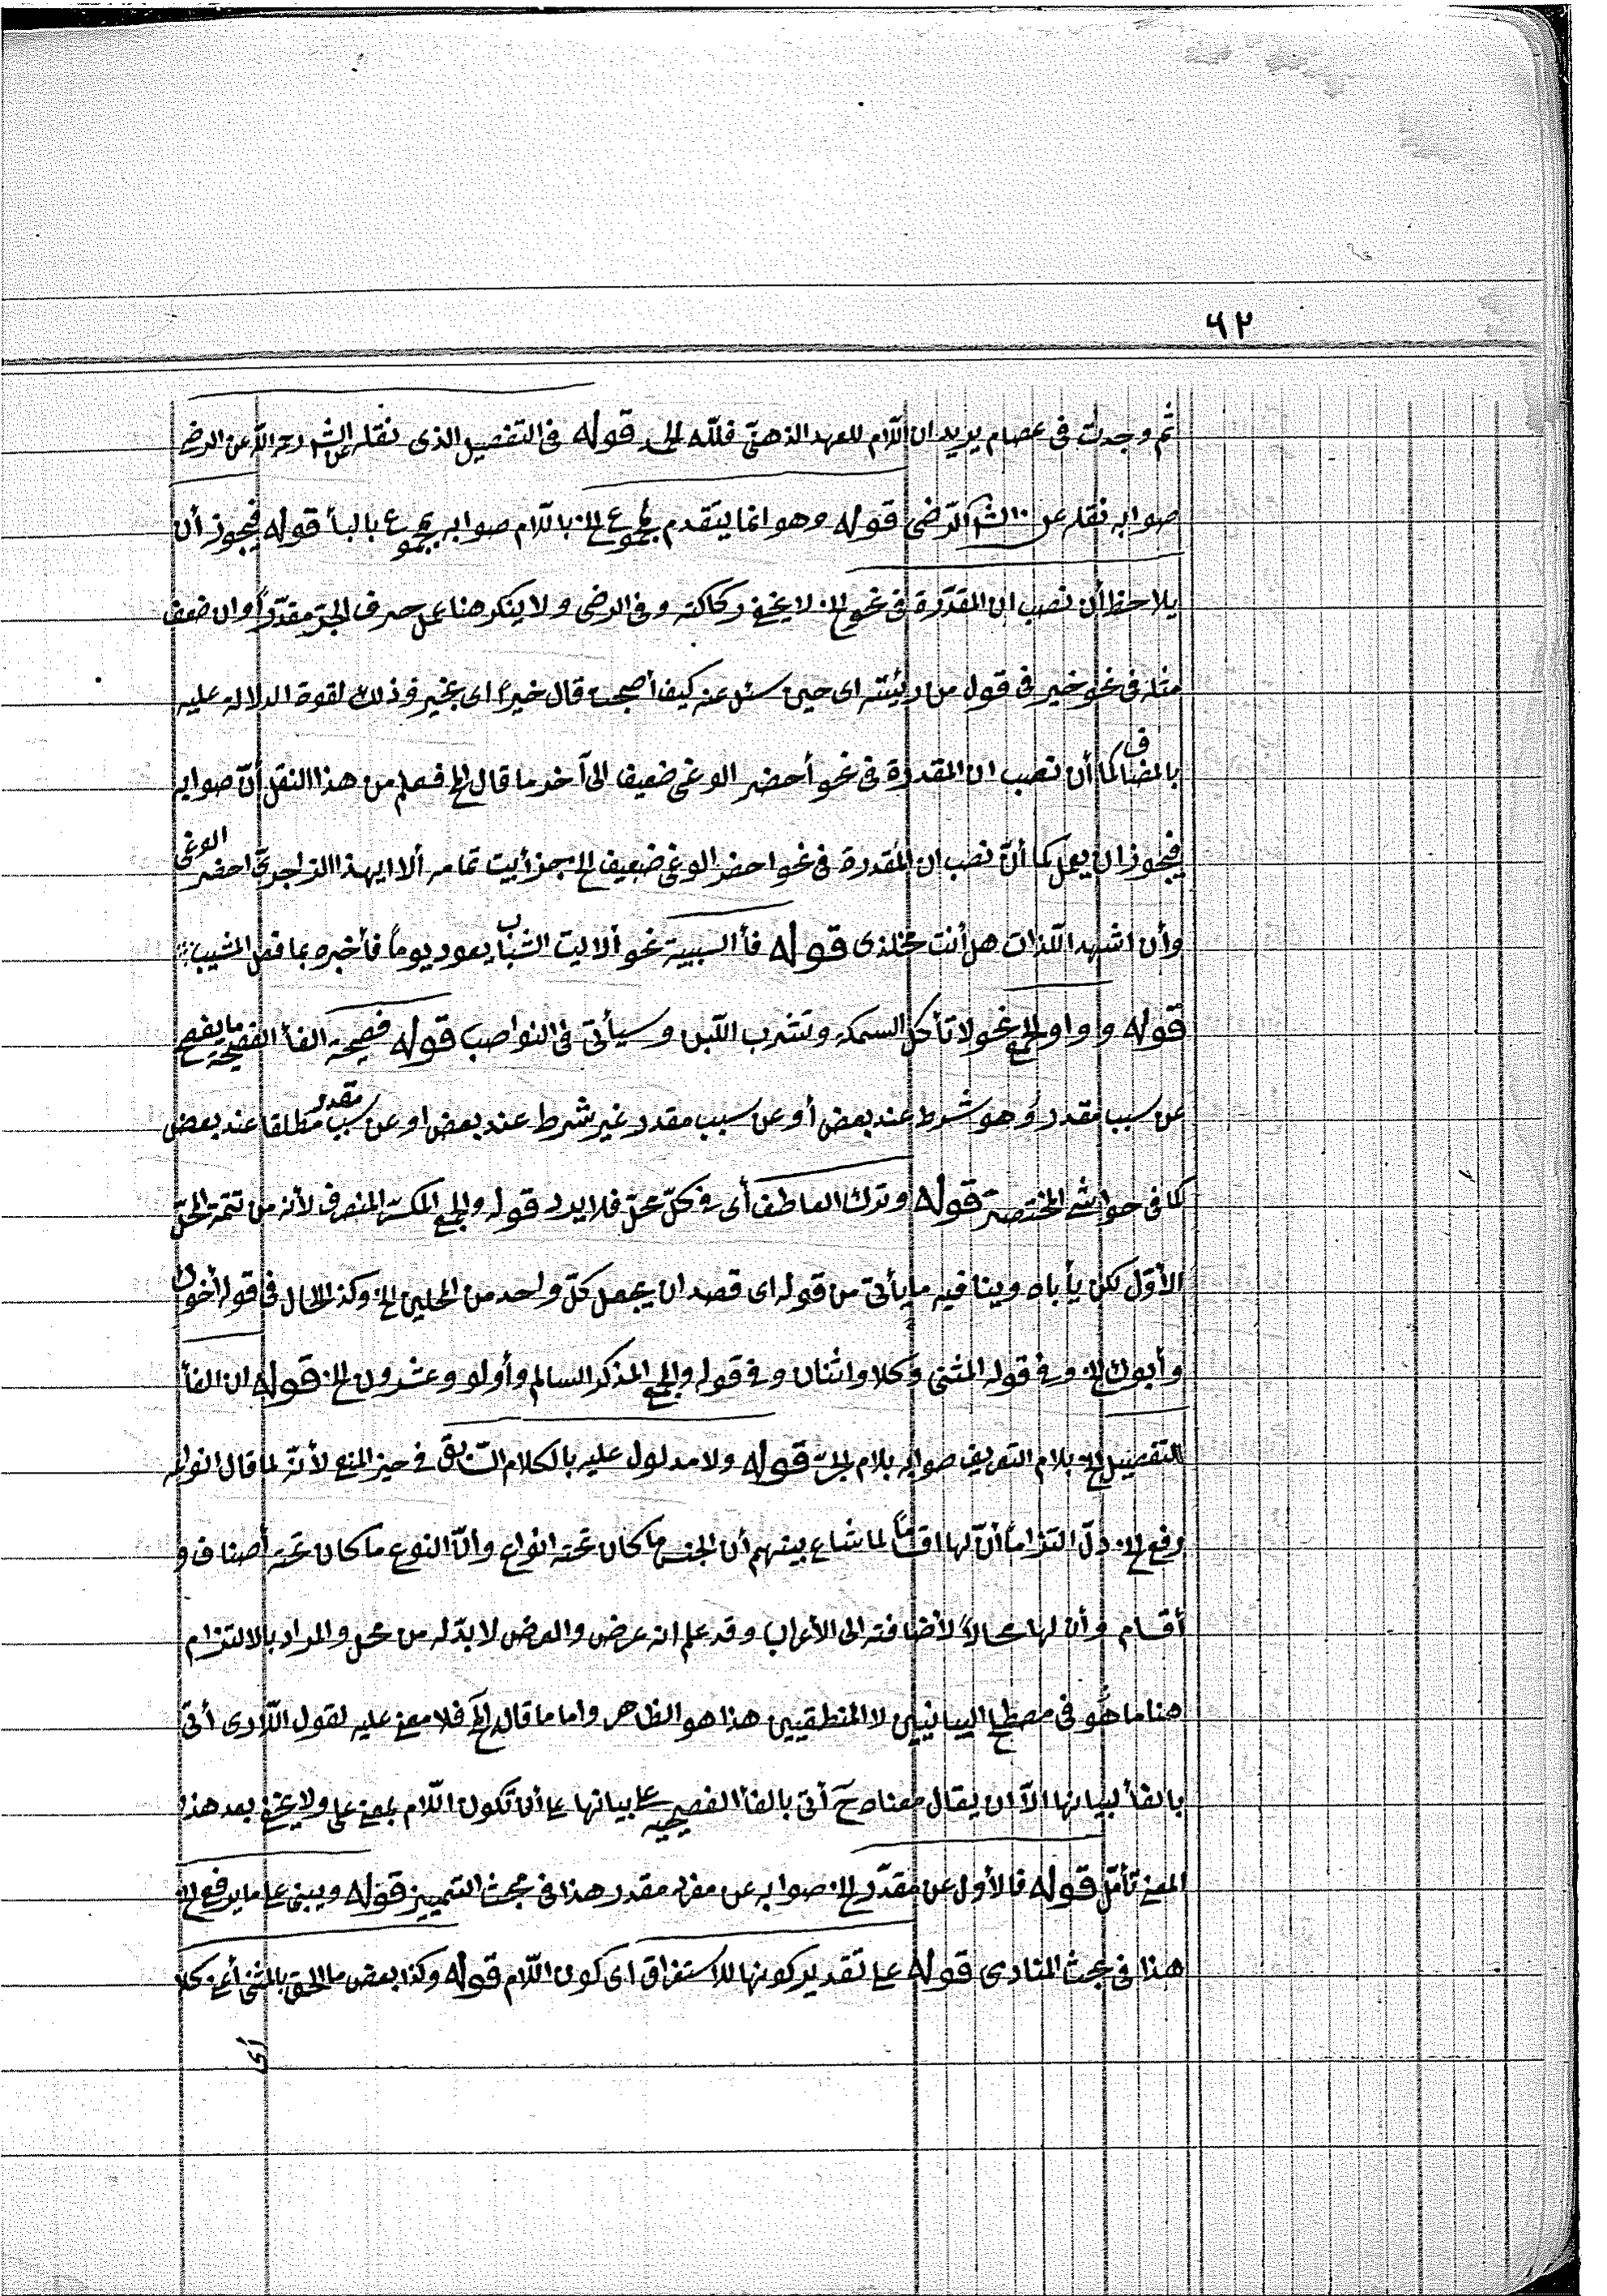 ٦٢
ثم وجدت فى عصام يريد ان اللّام للعهد الذهنّى فللّه الحمد قوله فى التفصيل الذى نقله الش رحه اللّه عن الرضى
صوابه نقله عن الش الرّضى قوله وهو انما يتقدم لمجموع الخ باللّام صوابه بمجموع بالبأ قوله فيجوز أن
يلاحظ أن نصب ان المقدّرة فى نحو الخ لا يخفى ركاكته وفى الرضى ولا ينكر هنا عمل حرف الجرّ مقدّراً وان ضعف
مثله فى نحو خير فى قول من رئيته اى حين سئل عنه كيف أصبحت قال خيراً اى بخير وذلك لقوة الدلالة عليه
بالمضاف كما أن نصب ان المقدرة فى نحو أحضر الوغى ضعيف الى آخر ما قال الخ فعلم من هذا النقل أنّ صوابه
فيجوز ان يعمل كما أنّ نصب ان المقدرة فى نحو احضر الوغى ضعيف الخ جزأ بيت تمامه ألا ايهذا الزاجرىّ احضر الوغى
وأن اشهد اللّذات هل أنت مخلدى قوله فأ السببية نحو ألا ليت الشباب يعود يوماً فأخبره بما فعل المشيب
قوله وواو الجمع نحو لا تأكل السمكه وتشرب اللّبن وسيأتى فى النواصب قوله فصيحة الفأ الفصيحة ما يفصح
عن سبب مقدر وهو شرط عند بعض أو عن سبب مقدر غير شرط عند بعض او عن سبب مقدر مطلقا عند بعض
كما فى حواشى المختصر قوله وترك العاطف أى فى كلّ محلّ فلا يرد قوله والجمع المكسّر المنصرف لأنه من تتمة المحلّ
الأوّل لكن يأباه وينافيه ما يأتى من قوله اى قصد ان يجعل كلّ واحد من المحلين الخ وكذا الحال فى قوله أخوك
وأبوك الخ وفى قوله المثنى وكلا واثنان وفى قوله والجمع المذكر السالم وأولو وعشرون الخ قوله ان الفأ
للتفصيل الخ بلام التعريف صوابه بلام الجرّ قوله ولا مدلول عليه بالكلام السّابق فى حيز المنع لأنّه لما قال انواعه
رفع الخ دلّ التزاماً أنّ لها اقساماً لما شاع بينهم أن الجنس ما كان تحته انواع وأنّ النوع ما كان تحته أصناف و
أقسام وأن لها محالاً لأضافته الى الأعراب وقد علم انه عرض والعرض لا بدّ له من محل والمراد بالالتزام
هنا ما هو فى مصطلح البيانيين لا المنطقيين هذا هو الظاهر واما ما قاله الخ فلا معنى عليه لقول اللّارى أتى
بالفأ لبيانها الّا ان يقال معناه ح أتى بالفأ الفصيحيه على بيانها على أن تكون اللّام بمعنى على ولا يخفى بعد هذا
المعنى تأمّل قوله فالأول عن مقدّر الخ صوابه عن مفرد مقدر هذا فى بحث التمييز قوله ويبنى على ما يرفع الخ
هذا فى بحث المنادى قوله على تقدير كونها للاستغراق اى كون اللّام قوله وكذا بعض ما الحق بالمثنى أعنى كلا
أى